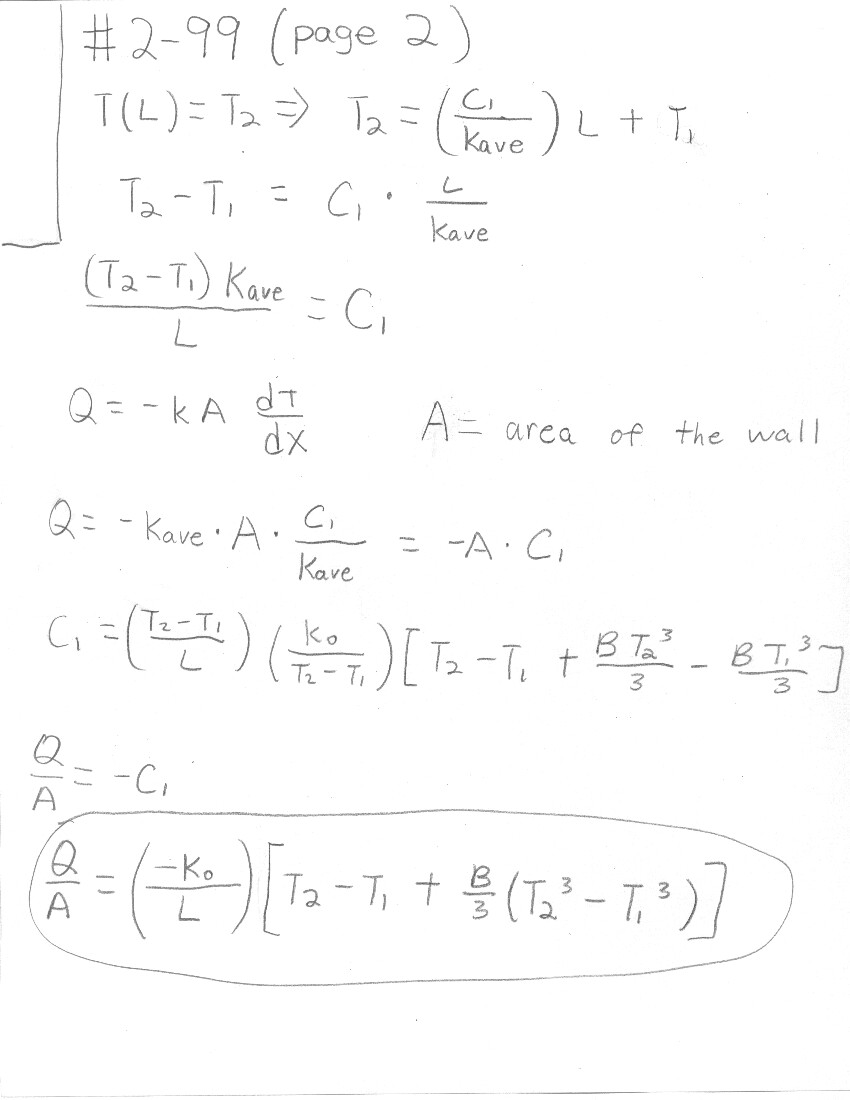 #2-99 (page 2)
T(L) = T₂ ⇒ T₂ = (C₁/Kave) L + T₁
T₂ - T₁ = C₁ · L/Kave
(T₂ - T₁) Kave/L = C₁
Q = -kA dT/dx A = area of the wall
Q = -Kave · A · C₁/Kave = -A · C₁
C₁ = (T₂-T₁/L) (K₀/T₂-T₁) [T₂ - T₁ + BT₂³/3 - BT₁³/3]
Q/A = -C₁
Q/A = (-K₀/L) [T₂ - T₁ + B/3 (T₂³ - T₁³)]